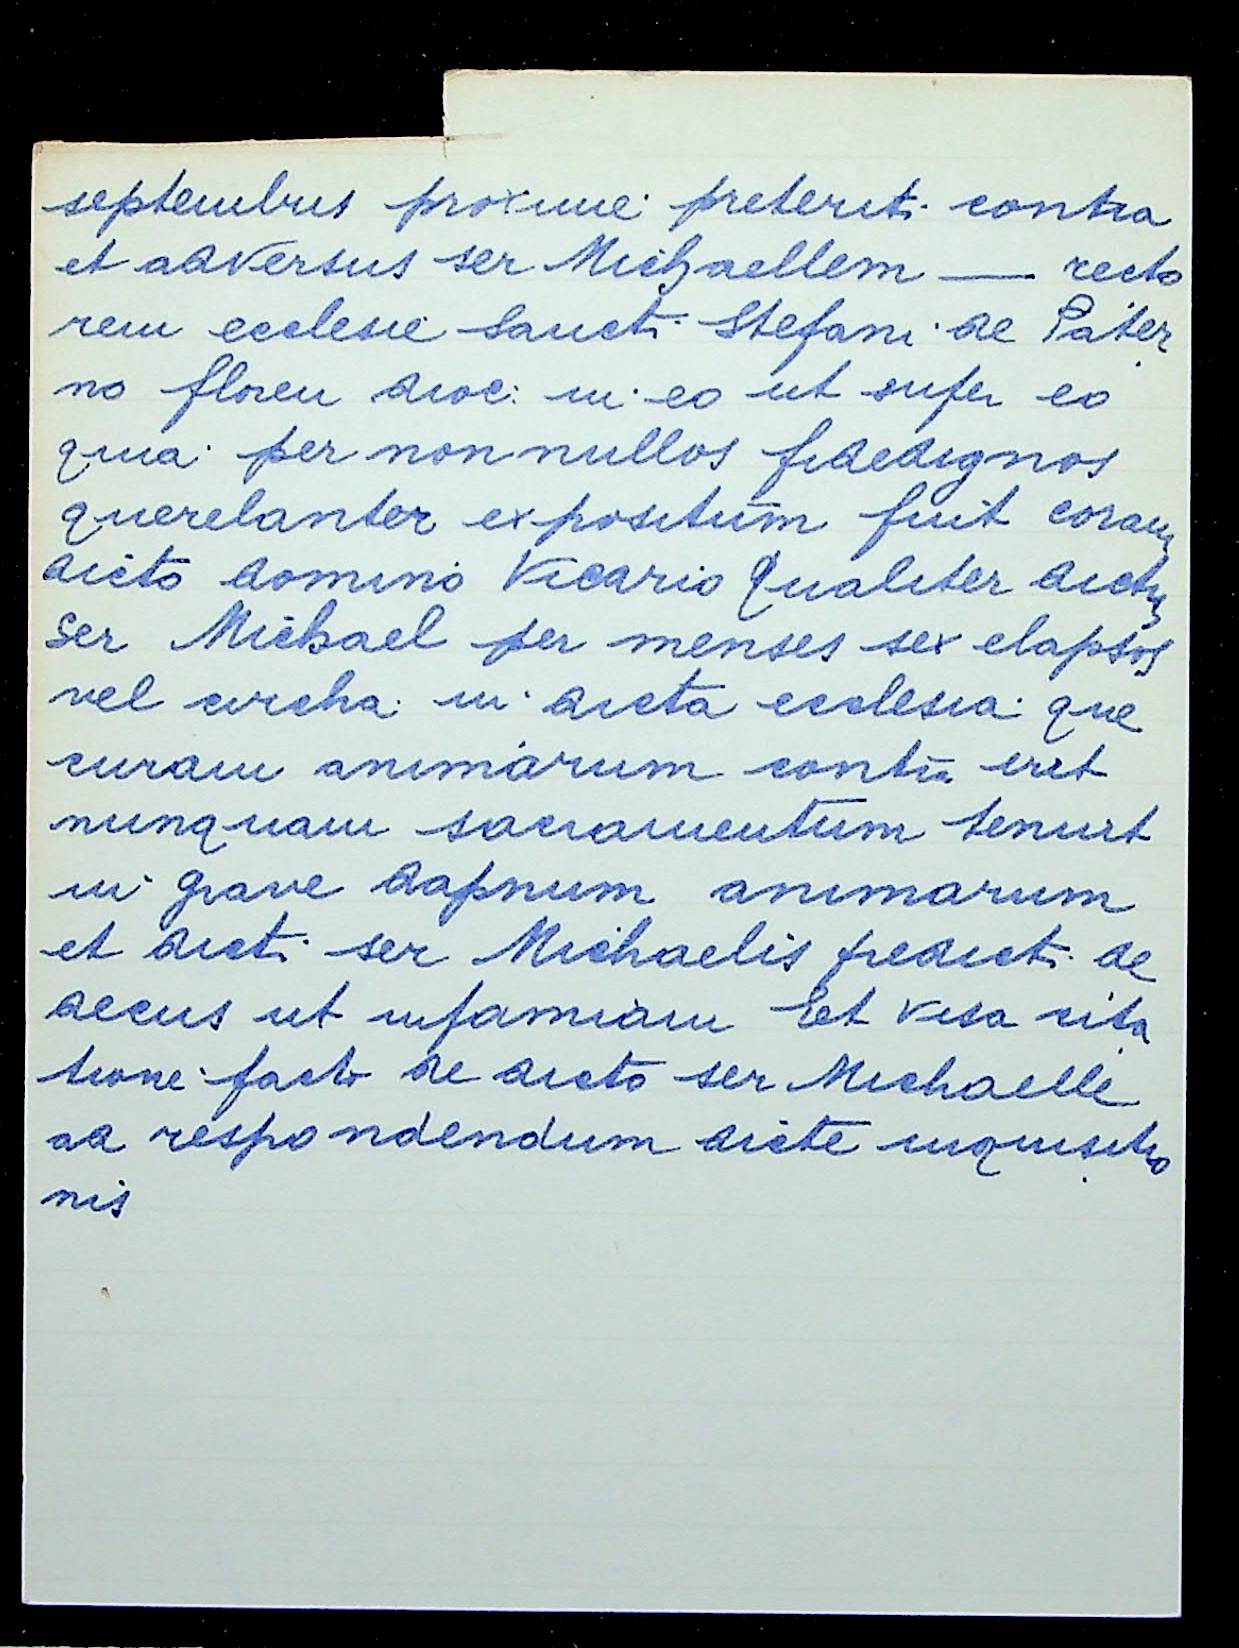 septembris proxime preteriti contra
et adversus ser Michaellem — recto
rem ecclesie Sancti Stefani de Pater
no floren dioc: in eo ut super eo
quia per non nullos fidedignos
querelanter expositum fuit coram
dicto domino Vicario Qualiter dictus
ser Michael per menses sex elapsos
vel circha in dicta ecclesia que
curam animarum contin eret
nunquam sacramentum tenuit
in grave dapnum animarum
et dicti ser Michaelis predicti de
decus et infamiam Et visa cita
tione facto de dicto ser Michaelle
ad respondendum dicte inquisitio
nis